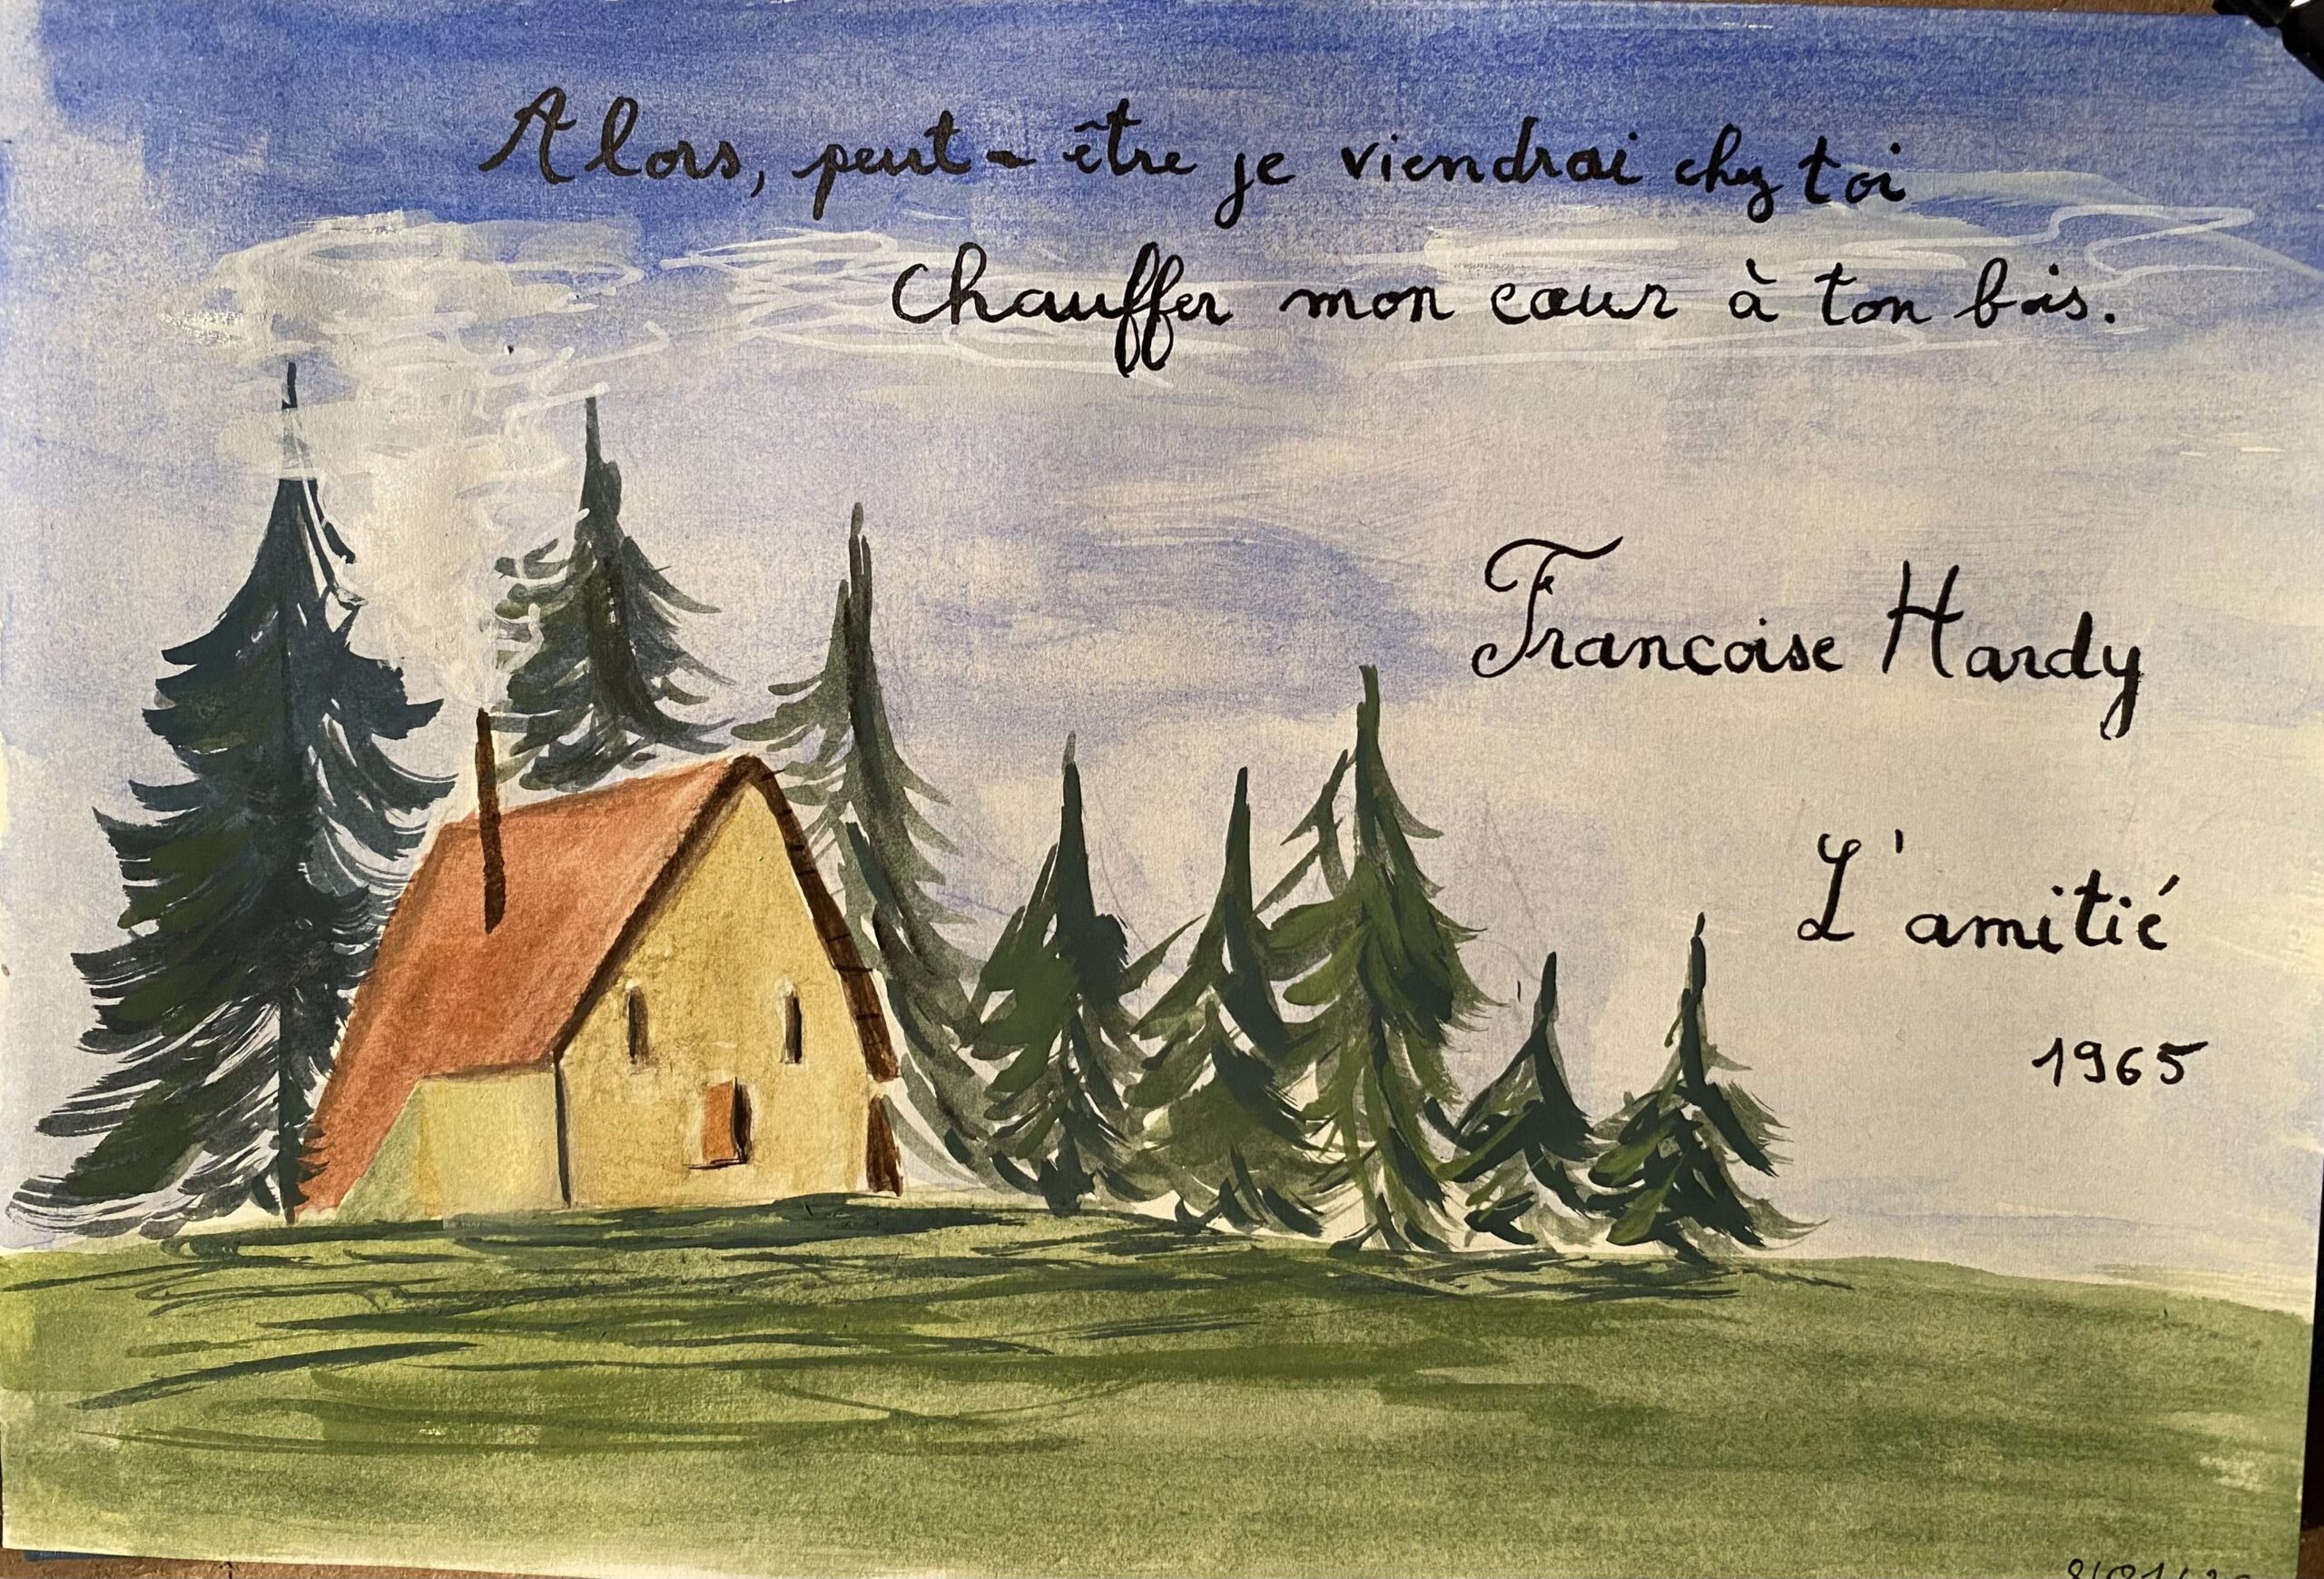 Alors, peut-être je viendrai chez toi
Chauffer mon cœur à ton bois.
Francoise Hardy
L'amitié
1965